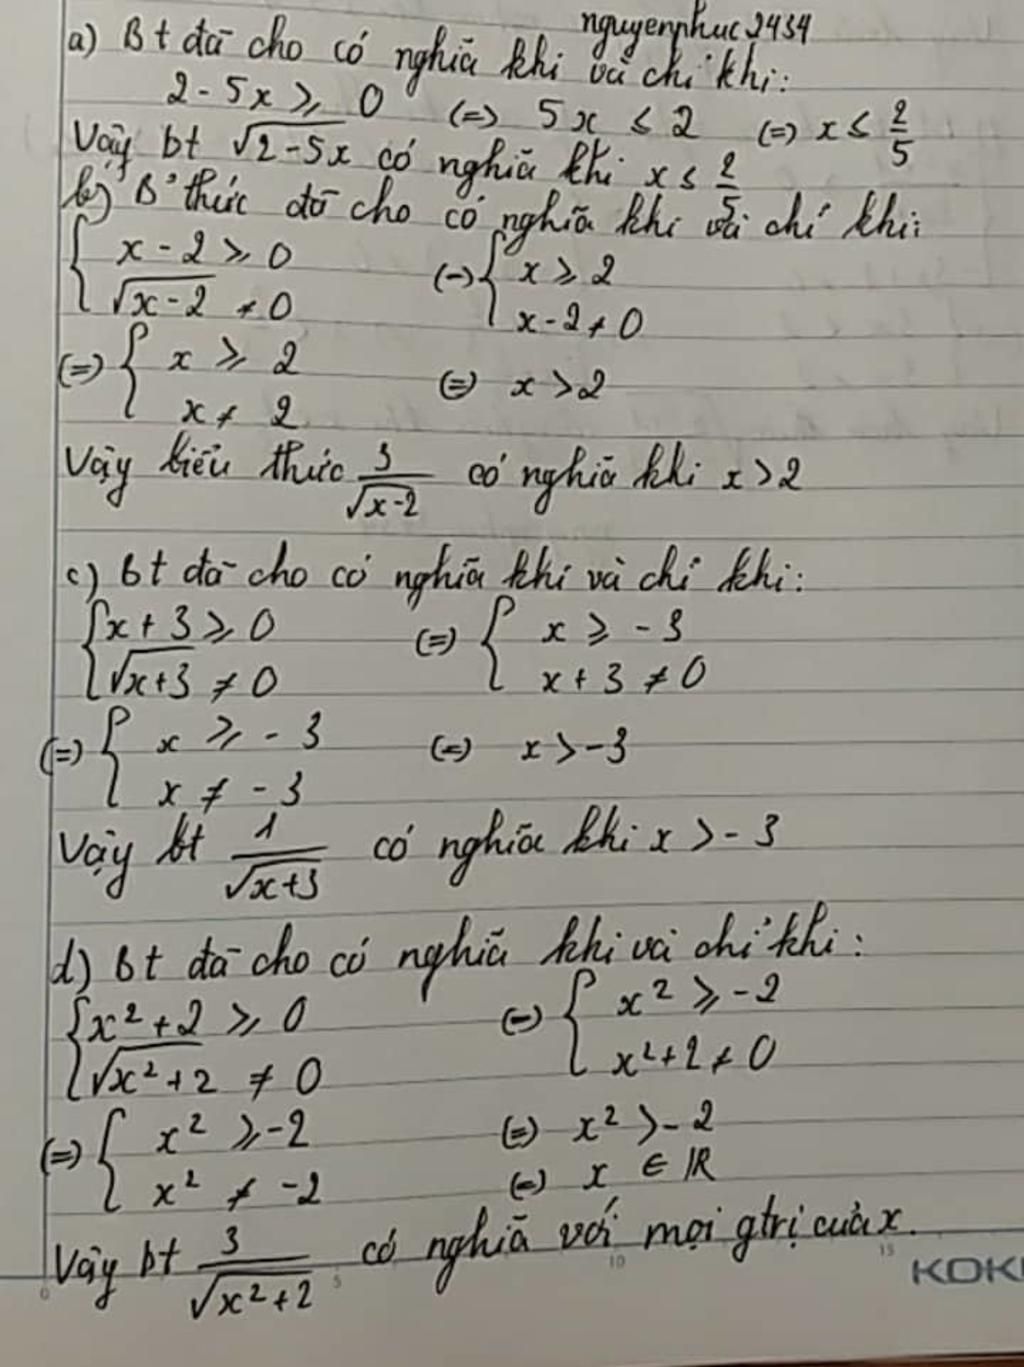 nguyenphuc2434
a) Bt đã cho có nghĩa khi và chỉ khi:
2 - 5x ⩾ 0 (=) 5x ≤ 2 (=) x ≤ 2/5
Vậy bt √(2-5x) có nghĩa khi x ≤ 2/5
b) B' thức đã cho có nghĩa khi và chỉ khi:
{ x - 2 ⩾ 0 (=) { x ⩾ 2
√(x-2) ≠ 0 x - 2 ≠ 0
(=) { x ⩾ 2 (=) x > 2
x ≠ 2
Vậy biểu thức 3/√(x-2) có nghĩa khi x > 2
c) Bt đã cho có nghĩa khi và chỉ khi:
{ x + 3 ⩾ 0 (=) { x ⩾ -3
√(x+3) ≠ 0 x + 3 ≠ 0
(=) { x ⩾ -3 (=) x > -3
x ≠ -3
Vậy bt 1/√(x+3) có nghĩa khi x > -3
d) Bt đã cho có nghĩa khi và chỉ khi:
{ x² + 2 ⩾ 0 (=) { x² ⩾ -2
√(x²+2) ≠ 0 x² + 2 ≠ 0
(=) { x² ⩾ -2 (=) x² > -2
x² ≠ -2 (=) x ∈ ℝ
Vậy bt 3/√(x²+2) có nghĩa với mọi gtrị của x.
0 5 10 15 KOK